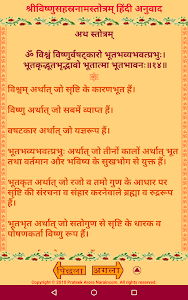 श्रीविष्णुसहस्त्रनामस्तोत्रम् हिंदी अनुवाद
अथ स्तोत्रम्
ॐ विश्वं विष्णुर्वषट्कारो भूतभव्यभवत्प्रभुः।
भूतकृद्भूतभृद्भावो भूतात्मा भूतभावनः॥१४॥
विश्वम् अर्थात् जो सृष्टि के कारणभूत हैं।
विष्णु अर्थात् जो सबमें व्याप्त हैं।
वषटकार अर्थात् जो यज्ञरूप हैं।
भूतभव्यभवत्प्रभुः अर्थात् जो तीनों कालों अर्थात् भूत
तथा वर्तमान और भविष्य के सुखभोग से युक्त हैं।
भूतकृत अर्थात् जो रजो व तमो गुण के आधार पर
सृष्टि की संरचना व संहार करनेवाले ब्रह्मा व रुद्ररूप
हैं।
भूतभृत अर्थात् जो सतोगुण से सृष्टि के धारक व
पोषणकर्ता विष्णु रूप हैं।
पिछला अगला
Copyright © 2015 Prateek Arora Narainsons. All rights reserved.